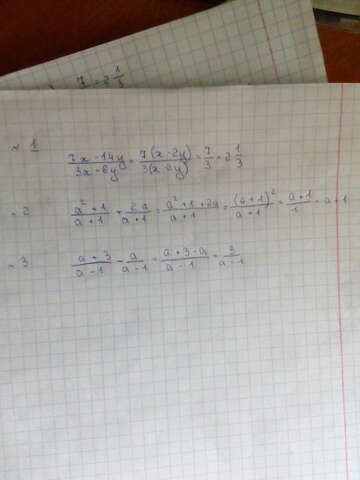 7/3 = 2 1/3
№ 1
(7x - 14y)/(3x - 6y) = 7(x - 2y)/3(x - 2y) = 7/3 = 2 1/3
№ 2
(a² + 1)/(a + 1) + 2a/(a + 1) = (a² + 1 + 2a)/(a + 1) = (a + 1)²/(a + 1) = (a + 1)/1 = a + 1
№ 3
(a + 3)/(a - 1) - a/(a - 1) = (a + 3 - a)/(a - 1) = 3/(a - 1)